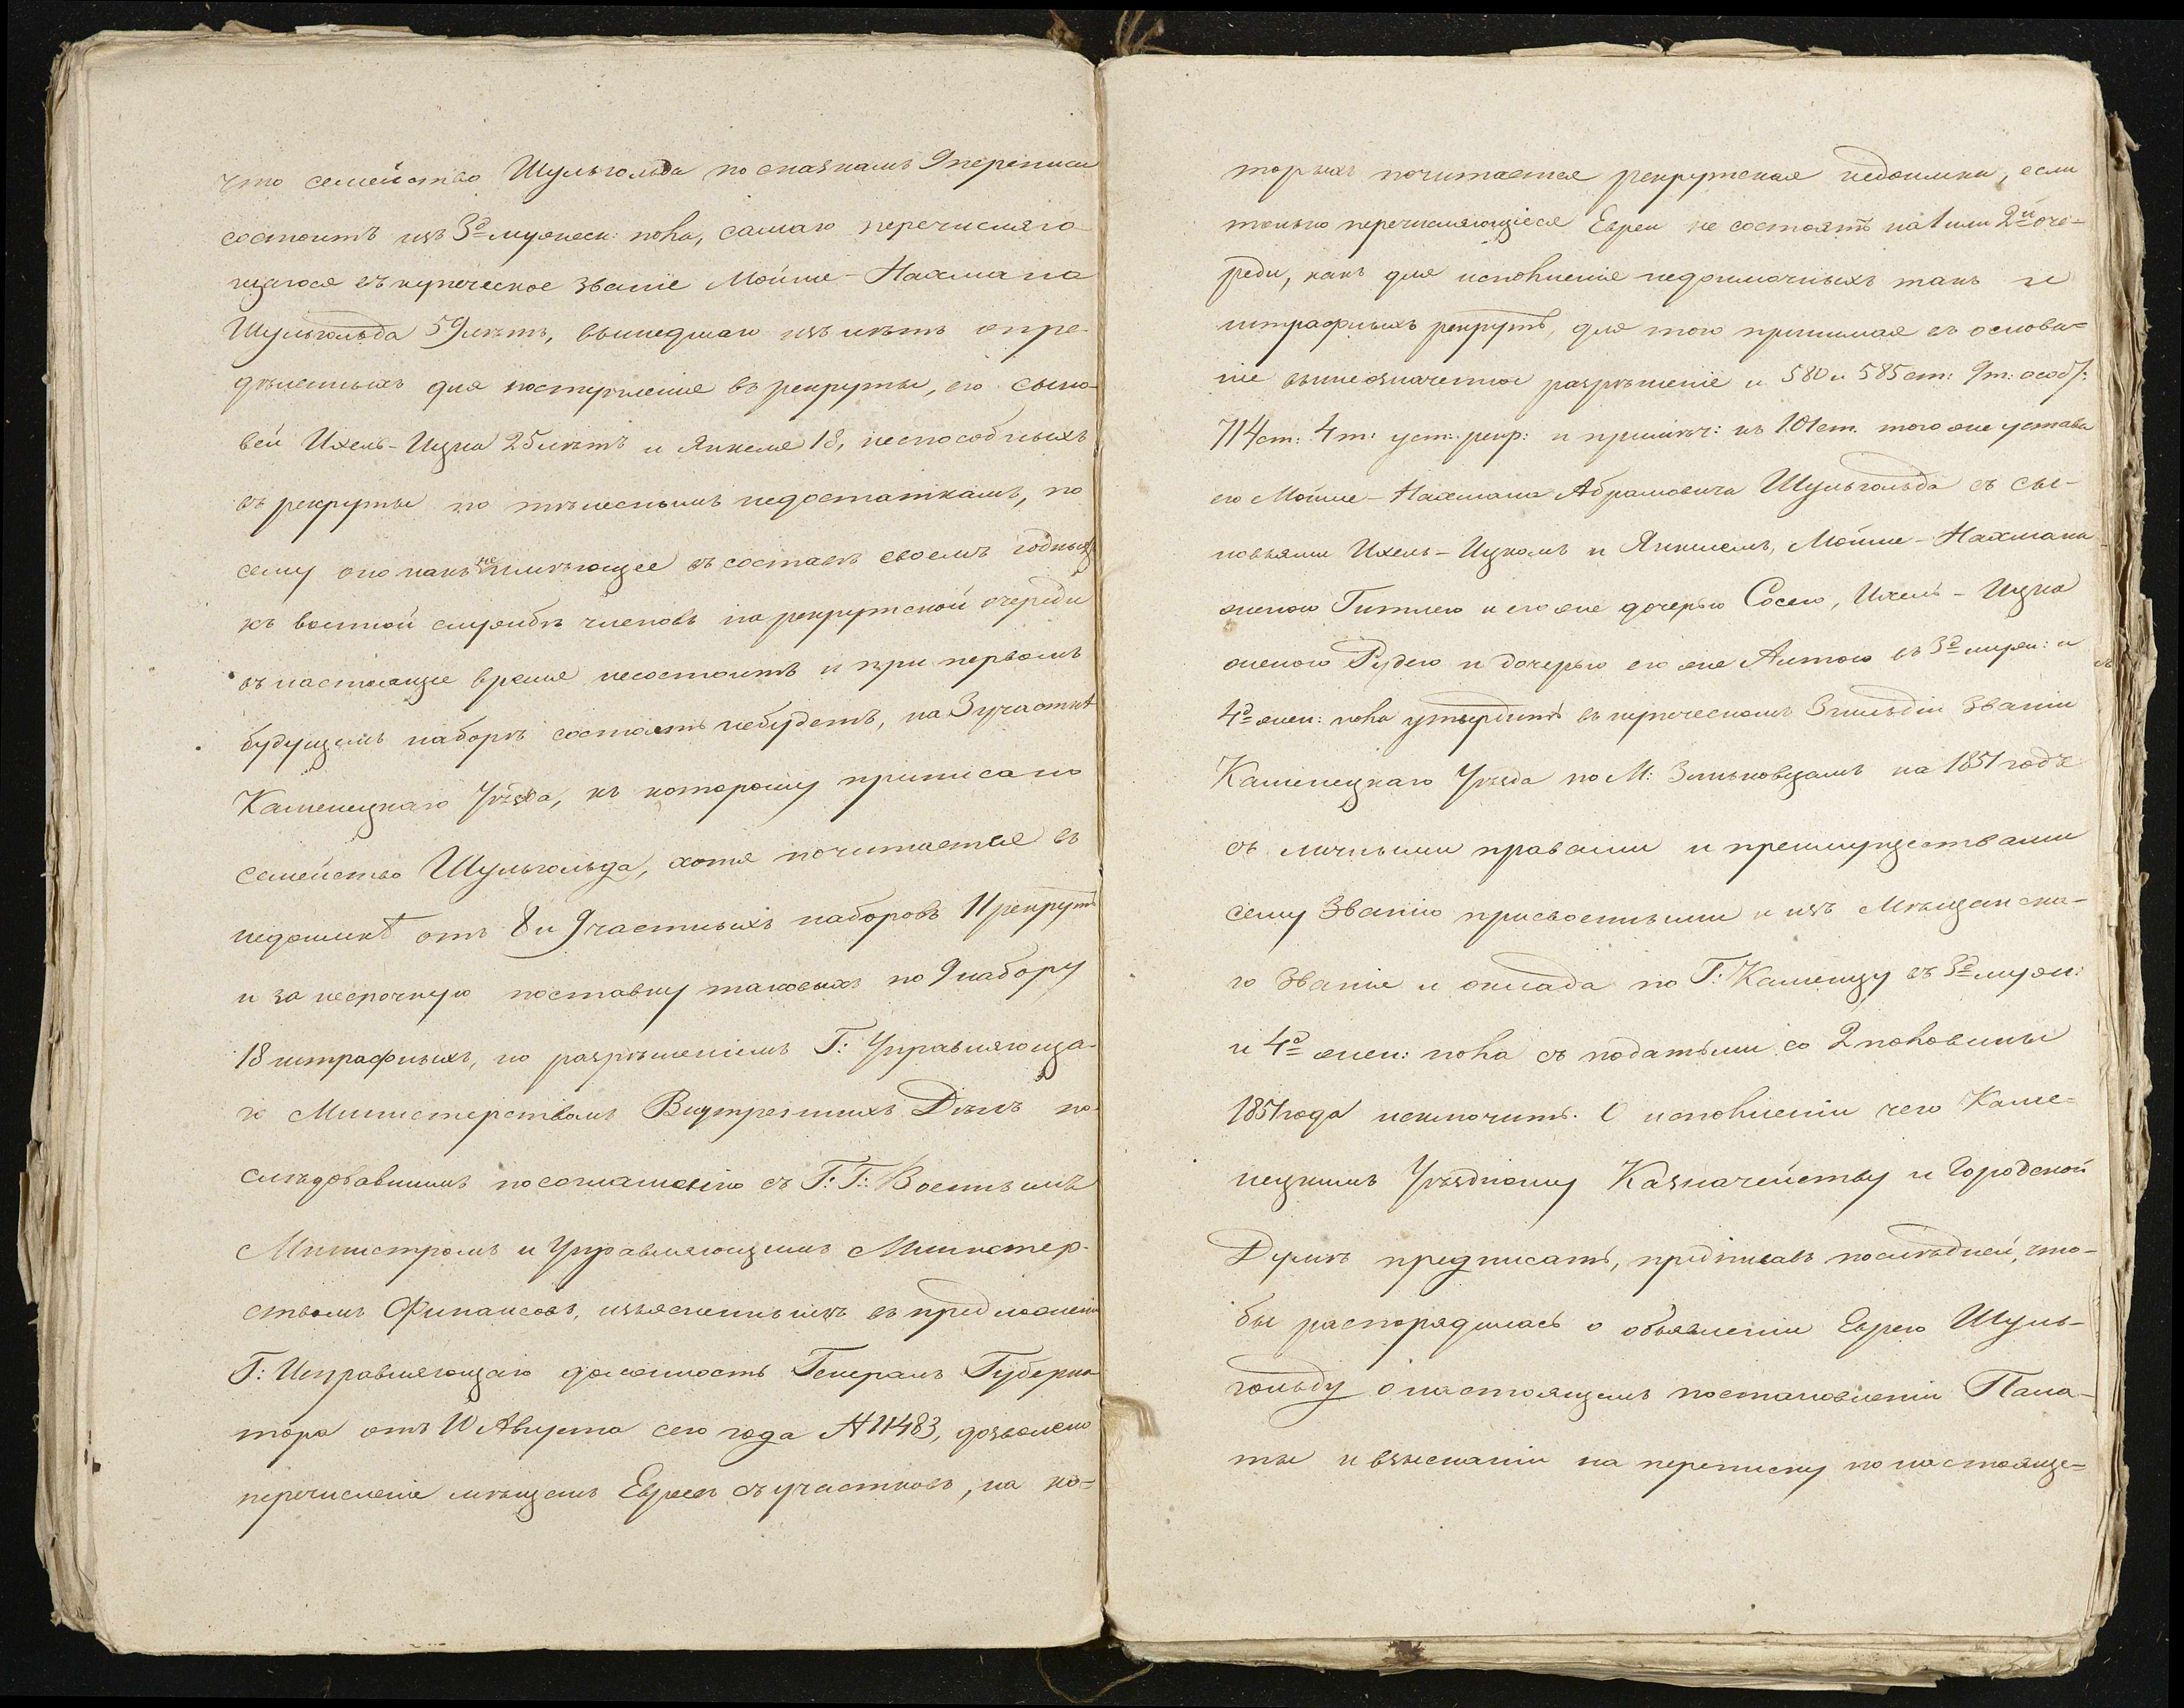 что семейство Шульгольда по сказкамъ 9 переписи
состоитъ изъ 3<sup>хъ</sup> мужеск: пола, самаго перечисляю-
щагося въ купеческое званіе Мойше-Нахмана
Шульгольда 59 лѣтъ, вышедшаго изъ лѣтъ опре-
дѣленныхъ для поступленія въ рекруты, его сыно-
вей Ихель-Ицка 25 лѣтъ и Янкеля 18, неспособныхъ
въ рекруты по тѣлеснымъ недостаткамъ, по
сему оно какъ не имѣющее въ составѣ своемъ годныхъ
къ военной службѣ членовъ на рекрутской очереди
въ настоящее время несостоитъ и при первомъ
будущемъ наборѣ состоять небудетъ, на 3 участкѣ
Каменецкаго Уѣзда, къ которому приписано
семейство Шульгольда, хотя почитается въ
недоимкѣ отъ 8 и 9 частныхъ наборовъ 11 рекрутъ
и за несрочную поставку таковыхъ по 9 набору
18 штрафныхъ, но разрѣшеніемъ Г: Управляюща-
го Министерствомъ Внутреннихъ Дѣлъ по-
слѣдовавшимъ по соглашенію съ Г: Г: Военнымъ
Министромъ и Управляющимъ Министер-
ствомъ Финансовъ, изъясненнымъ въ предложеніи
Г: Исправляющаго должность Генералъ Губерна-
тора отъ 10 Августа сего года N 11483, дозволено
перечисленіе мѣщанъ Евреевъ съ участковъ, на ко-
торыхъ почитается рекрутская недоимка, если
только перечисляющіеся Евреи не состоятъ на 1 или 2<sup>й</sup> оче-
реди, какъ для исполненія недоимочныхъ такъ и
штрафныхъ рекрутъ, для того принимая въ основа-
ніе вышеозначенное разрѣшеніе и 580 и 585 ст: 9 т: особ:
714 ст: 4 т: уст: рекр: и примѣч: къ 101 ст. того же устава
его Мойше-Нахмана Абрамовича Шульгольда съ сы-
новьями Ихель-Ицкомъ и Янкелемъ, Мойше-Нахмана
женою Гитлею и его же дочерью Сосею, Ихель-Ицка
женою Рудею и дочерью его же Антою въ 3<sup>хъ</sup> муж: и
4<sup>хъ</sup> жен: пола утвердить въ купеческомъ 3 гильдіи званіи
Каменецкаго Уѣзда по М: Зиньковцамъ на 1851 годъ
съ личными правами и преимуществами
сему званію присвоенными и изъ Мѣщанска-
го званія и оклада по Г: Каменцу въ 3<sup>хъ</sup> муж:
и 4<sup>хъ</sup> жен: пола съ податьми со 2 половины
1851 года исключить. О исполненіи чего Каме-
нецкимъ Уѣздному Казначейству и Городской
Думѣ предписать, предписавъ послѣдней, что-
бы распорядилась о объявленіи Еврею Шуль-
гольду о настоящемъ постановленіи Пала-
ты и взысканіи на переписку по настояще-